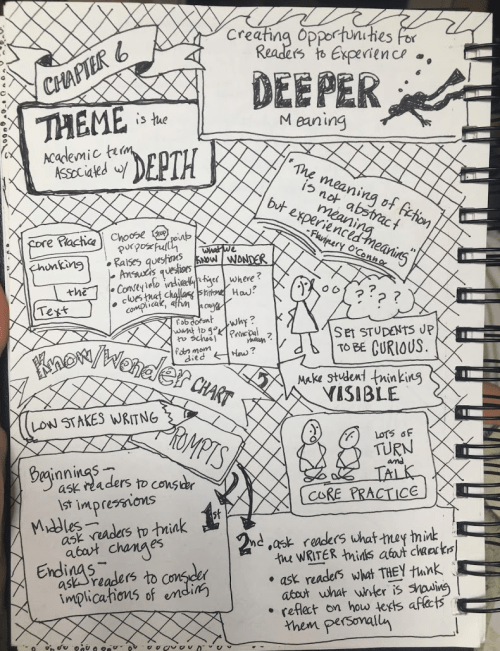 CHAPTER 6
Creating Opportunities for
Readers to Experience
DEEPER
Meaning
THEME is the
Academic term
Associated w/ DEPTH
"The meaning of fiction
is not abstract
meaning
but experienced meaning"
Core Practice
chunking
the
Text
Choose stop points
purposefully
• Raises questions
• Answers questions
• Convey info indirectly
• clues that challenge,
complicate,
what we
KNOW
WONDER
tiger
where?
How?
want to go
to school
Why?
Principal
mean?
Robs mom
died
How?
Know/Wonder CHART
3
? ? ? ?
SET STUDENTS UP
TO BE CURIOUS.
Make student thinking
VISIBLE
LOW STAKES WRITNG
PROMPTS
LOTS OF
TURN
and
TALK
CORE PRACTICE
Beginnings—
ask readers to consider
1st impressions
Middles—
ask readers to think
about changes
Endings—
ask readers to consider
implications of ending
1st
2nd • ask readers what they think
the WRITER thinks about characters
• ask readers what THEY think
about what writer is showing
• reflect on how texts affects
them personally